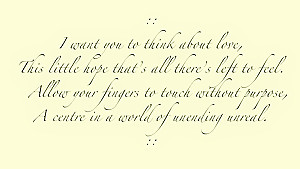 I want you to think about love,
This little hope that's all there's left to feel.
Allow your fingers to touch without purpose,
A centre in a world of unending unreal.